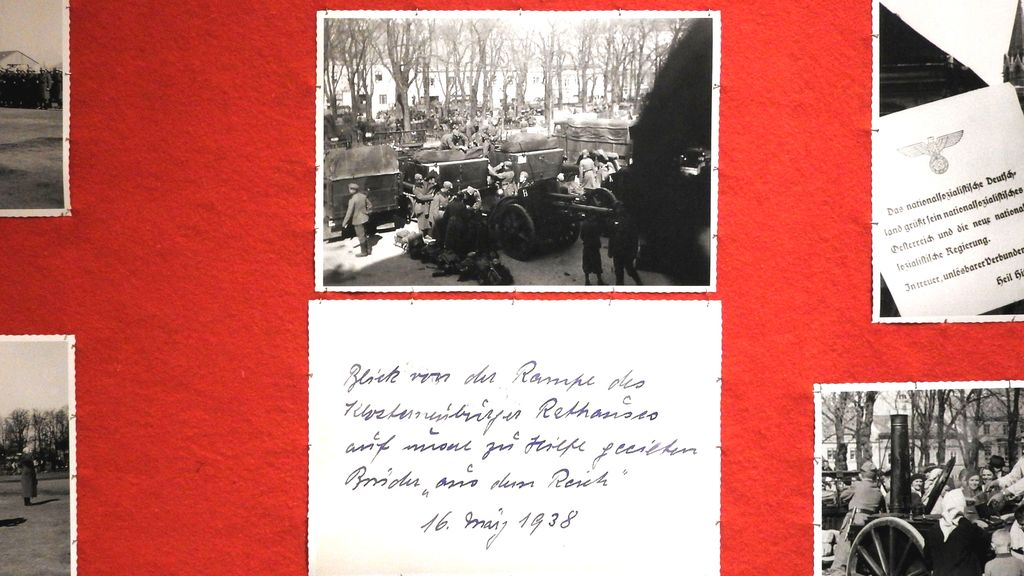 Blick von der Rampe des
Klosterneuburger Rathauses
auf unsre zu Hilfe geeilten
Brüder „aus dem Reich"
16. März 1938
Das nationalsozialistische Deutsch-
land grüßt sein nationalsozialistisches
Oesterreich und die neue national-
sozialistische Regierung.
In treuer, unlösbarer Verbunden
Heil Hi